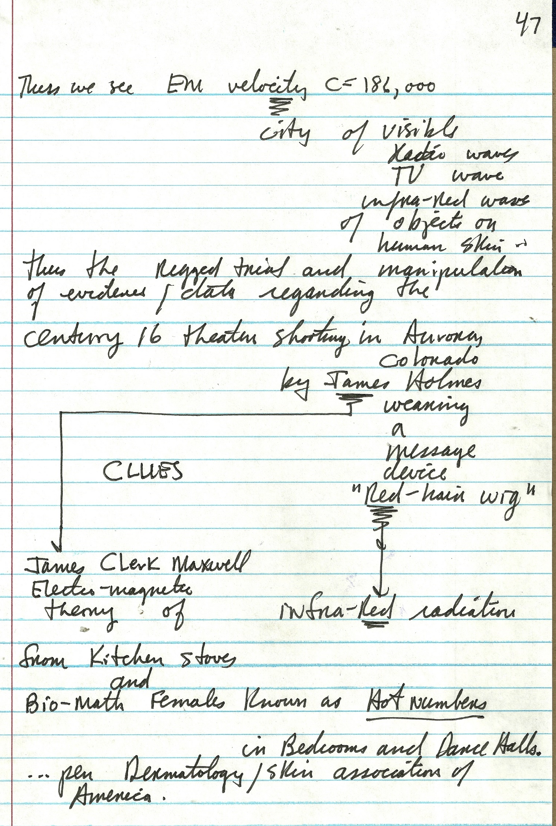 47
Thus we see EM velocity C=186,000
city of visible
Radio waves
TV wave
infra-red wave
of objects on
human skin
thus the rigged trial and manipulation
of evidence / data regarding the
century 16 theater shooting in Aurora,
Colorado
by James Holmes
wearing
a
message
device
"Red-hair wig"
CLUES
James Clerk Maxwell
Electro-magnetic
theory of infra-Red radiation
from Kitchen stoves
and
Bio-Math Females Known as Hot Numbers
in Bedrooms and Dance Halls.
... per Dermatology / skin association of
America.